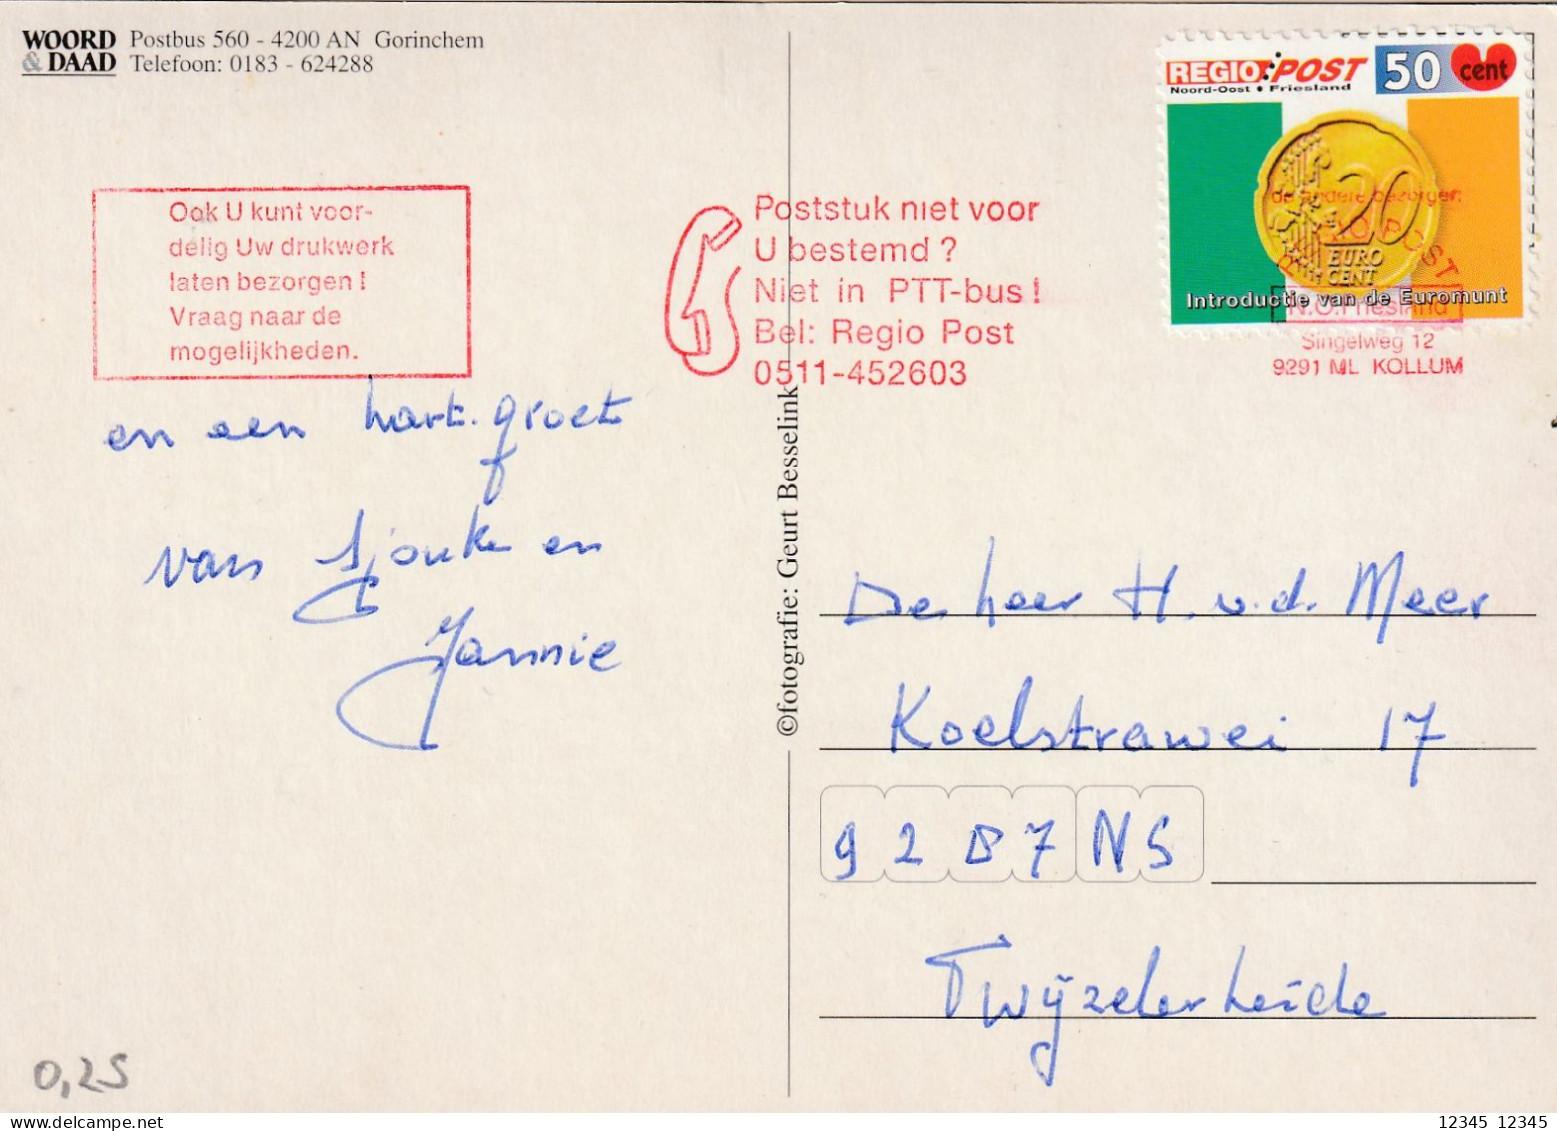 WOORD Postbus 560 - 4200 AN Gorinchem
& DAAD Telefoon: 0183 - 624288
REGIO POST 50 cent
Noord-Oost Friesland
20
EURO
CENT
Introductie van de Euromunt
Ook U kunt voor-
delig Uw drukwerk
laten bezorgen!
Vraag naar de
mogelijkheden.
Poststuk niet voor
U bestemd ?
Niet in PTT-bus!
Bel: Regio Post
0511-452603
de andere bezorger:
POST
N.O.Friesland
Singelweg 12
9291 ML KOLLUM
en een hart. groet
van Sjouke en
Jannie
©fotografie: Geurt Besselink
De heer H. v.d. Meer
Koelstrawei 17
9287 NS
Twijzelerheide
0,25
12345 12345